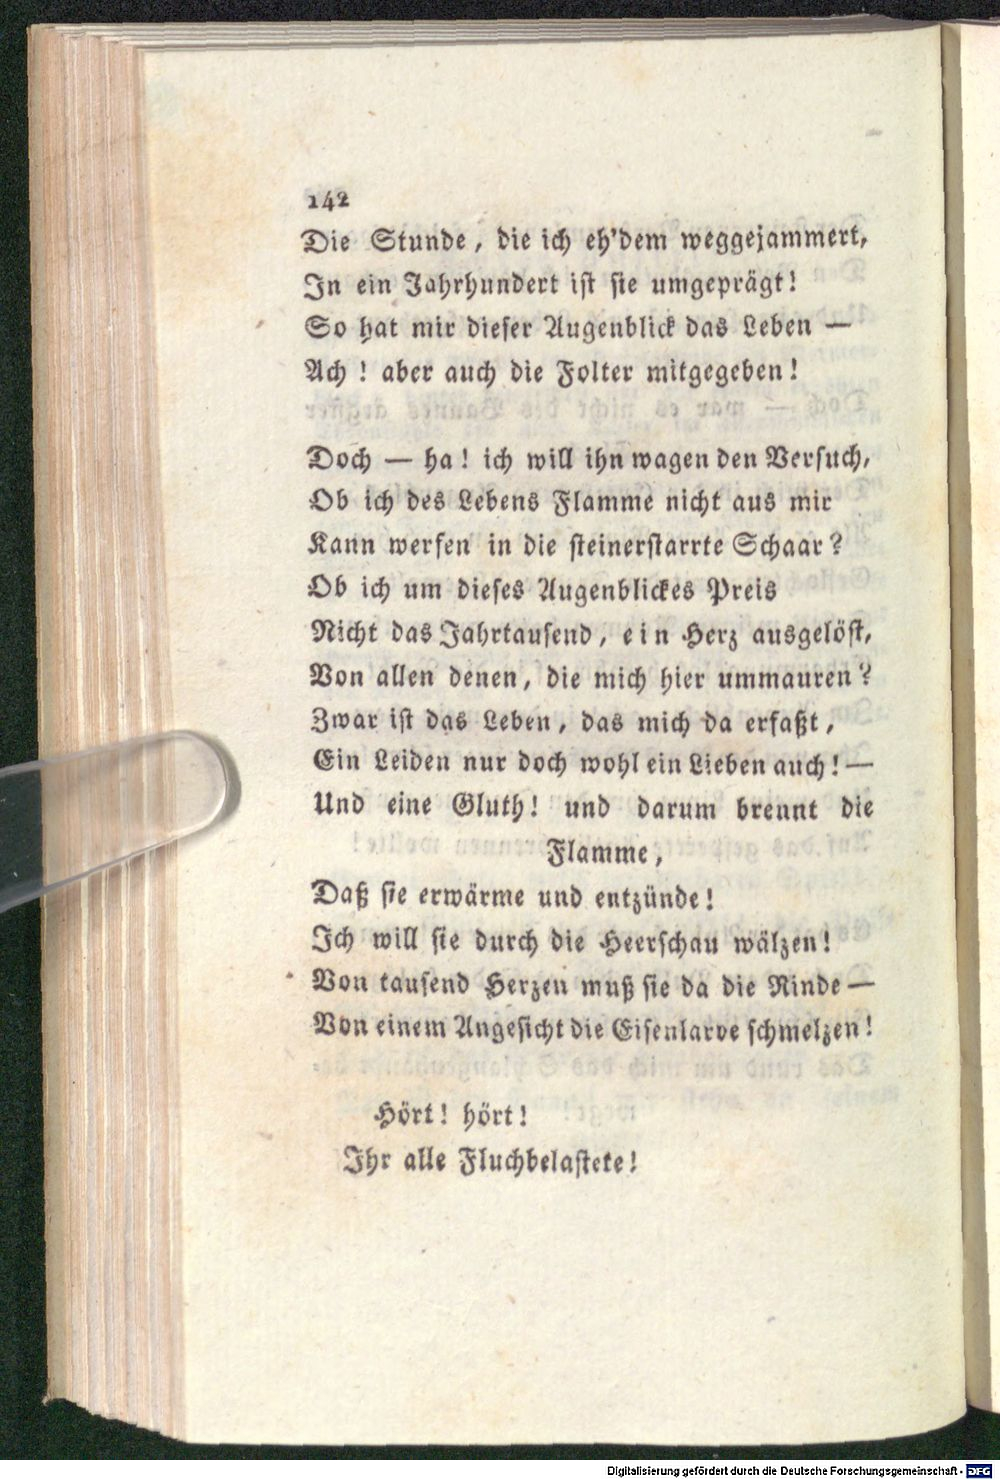 142
Die Stunde, die ich eh'dem weggejammert,
In ein Jahrhundert ist sie umgeprägt!
So hat mir dieser Augenblick das Leben —
Ach! aber auch die Folter mitgegeben!
Doch — ha! ich will ihn wagen den Versuch,
Ob ich des Lebens Flamme nicht aus mir
Kann werfen in die steinerstarrte Schaar?
Ob ich um dieses Augenblickes Preis
Nicht das Jahrtausend, ein Herz ausgelöst,
Von allen denen, die mich hier ummauren?
Zwar ist das Leben, das mich da erfaßt,
Ein Leiden nur doch wohl ein Lieben auch! —
Und eine Gluth! und darum brennt die
Flamme,
Daß sie erwärme und entzünde!
Ich will sie durch die Heerschau wälzen!
Von tausend Herzen muß sie da die Rinde —
Von einem Angesicht die Eisenlarve schmelzen!
Hört! hört!
Ihr alle Fluchbelastete!
Digitalisierung gefördert durch die Deutsche Forschungsgemeinschaft - DFG